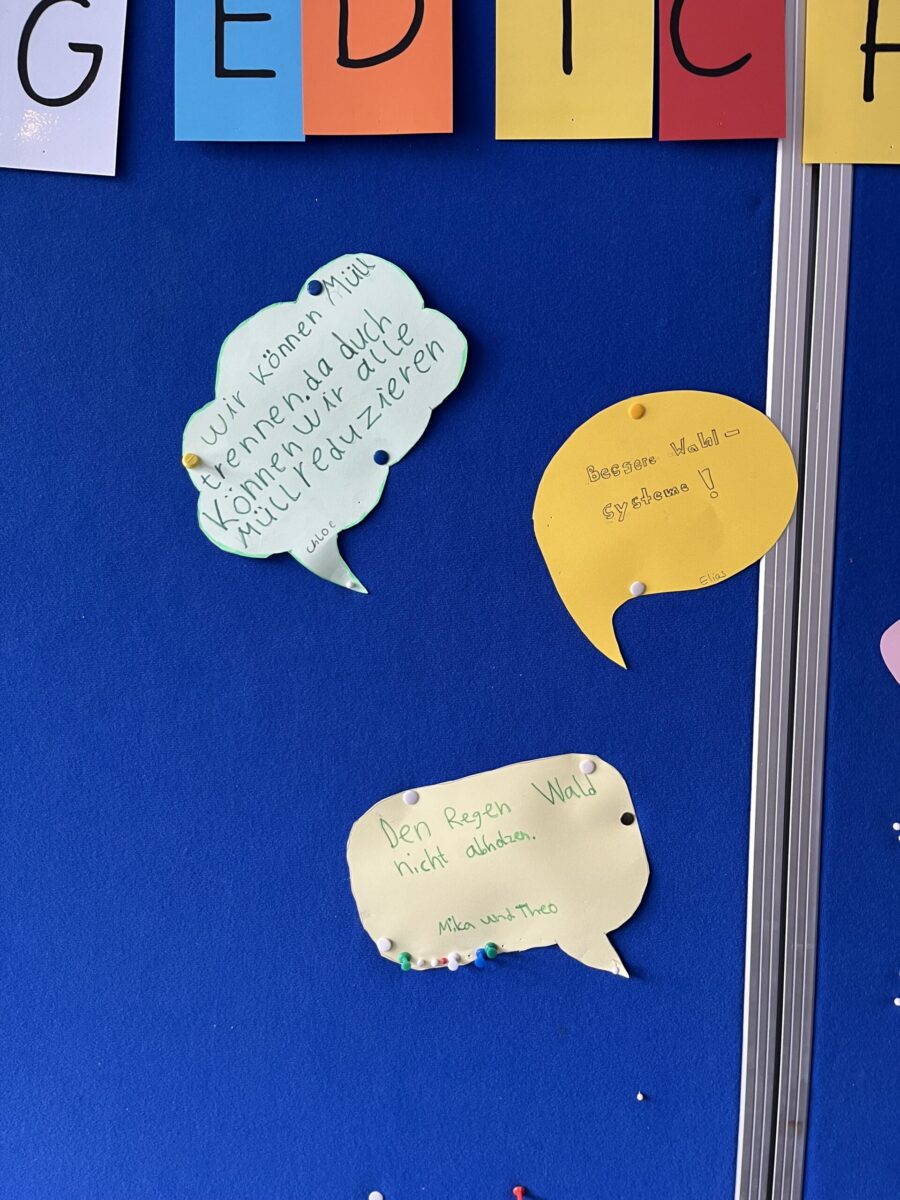 GEDICH
wir können Müll
trennen.da duch
können wir alle
Müll reduzieren
Chloe
Bessere Wahl-
systeme!
Elias
Den Regen Wald
nicht abholzen.
Mika und Theo